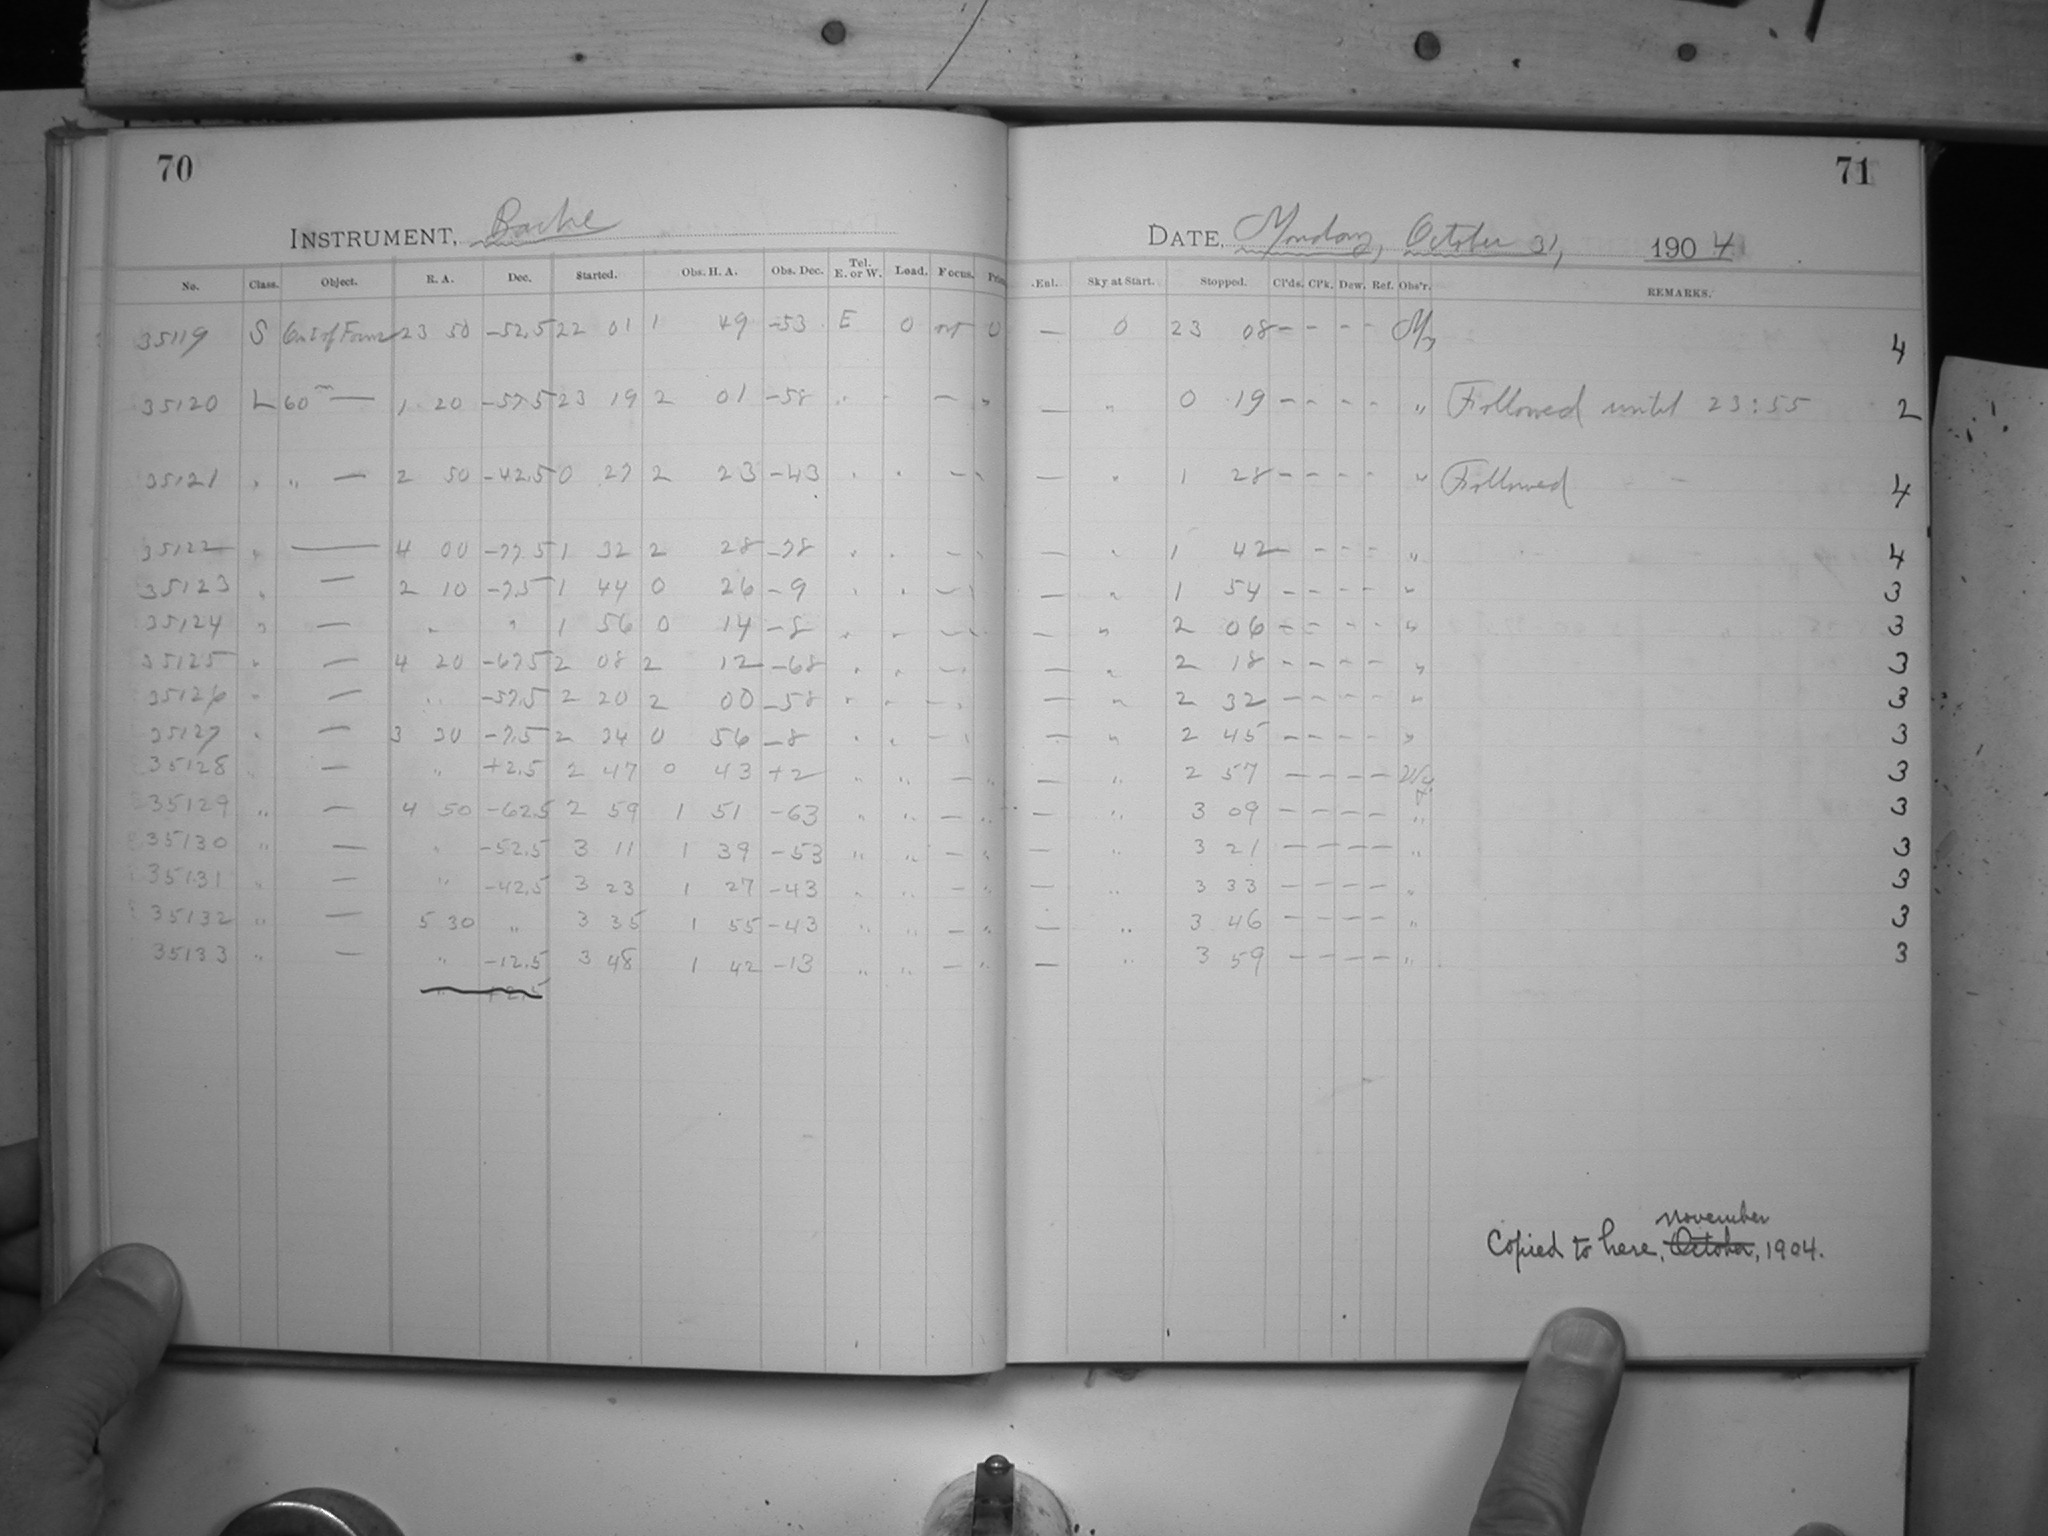 70
71
INSTRUMENT, Bache
DATE, Monday, October 31, 1904
No. Class. Object. R. A. Dec. Started. Obs. H. A. Obs. Dec. Tel. E. or W. Load. Focus. Enl. Sky at Start. Stopped. Cl'ds. Cl'k. Dew. Ref. Obs'r. REMARKS.
35119 S Out of Focus 23 50 -52.5 22 01 1 49 -53 E 0 0 — 0 23 08 - - - - 4
35120 L 60m — 1 20 -57.5 23 19 2 01 -58 " - — " — " 0 19 - - - - " Followed until 23:55 2
35121 " " — 2 50 -42.5 0 27 2 23 -43 " " — " — " 1 28 - - - - " Followed 4
35122 " — 4 00 -77.5 1 32 2 28 -78 " " — " — " 1 42 - - - - " 4
35123 " — 2 10 -7.5 1 44 0 26 -9 " " — " — " 1 54 - - - - " 3
35124 " — " " 1 56 0 14 -8 " " — " — " 2 06 - - - - " 3
35125 " — 4 20 -67.5 2 08 2 12 -68 " " — " — " 2 18 - - - - " 3
35126 " — " -57.5 2 20 2 00 -58 " " — " — " 2 32 - - - - " 3
35127 " — 3 30 -7.5 2 34 0 56 -8 " " — " — " 2 45 - - - - " 3
35128 " — " +2.5 2 47 0 43 +2 " " — " — " 2 57 - - - - 3
35129 " — 4 50 -62.5 2 59 1 51 -63 " " — " — " 3 09 - - - - " 3
35130 " — " -52.5 3 11 1 39 -53 " " — " — " 3 21 - - - - " 3
35131 " — " -42.5 3 23 1 27 -43 " " — " — " 3 33 - - - - " 3
35132 " — 5 30 " 3 35 1 55 -43 " " — " — " 3 46 - - - - " 3
35133 " — " -12.5 3 48 1 42 -13 " " — " — " 3 59 - - - - " 3
" +2.5
november
Copied to here, October, 1904.